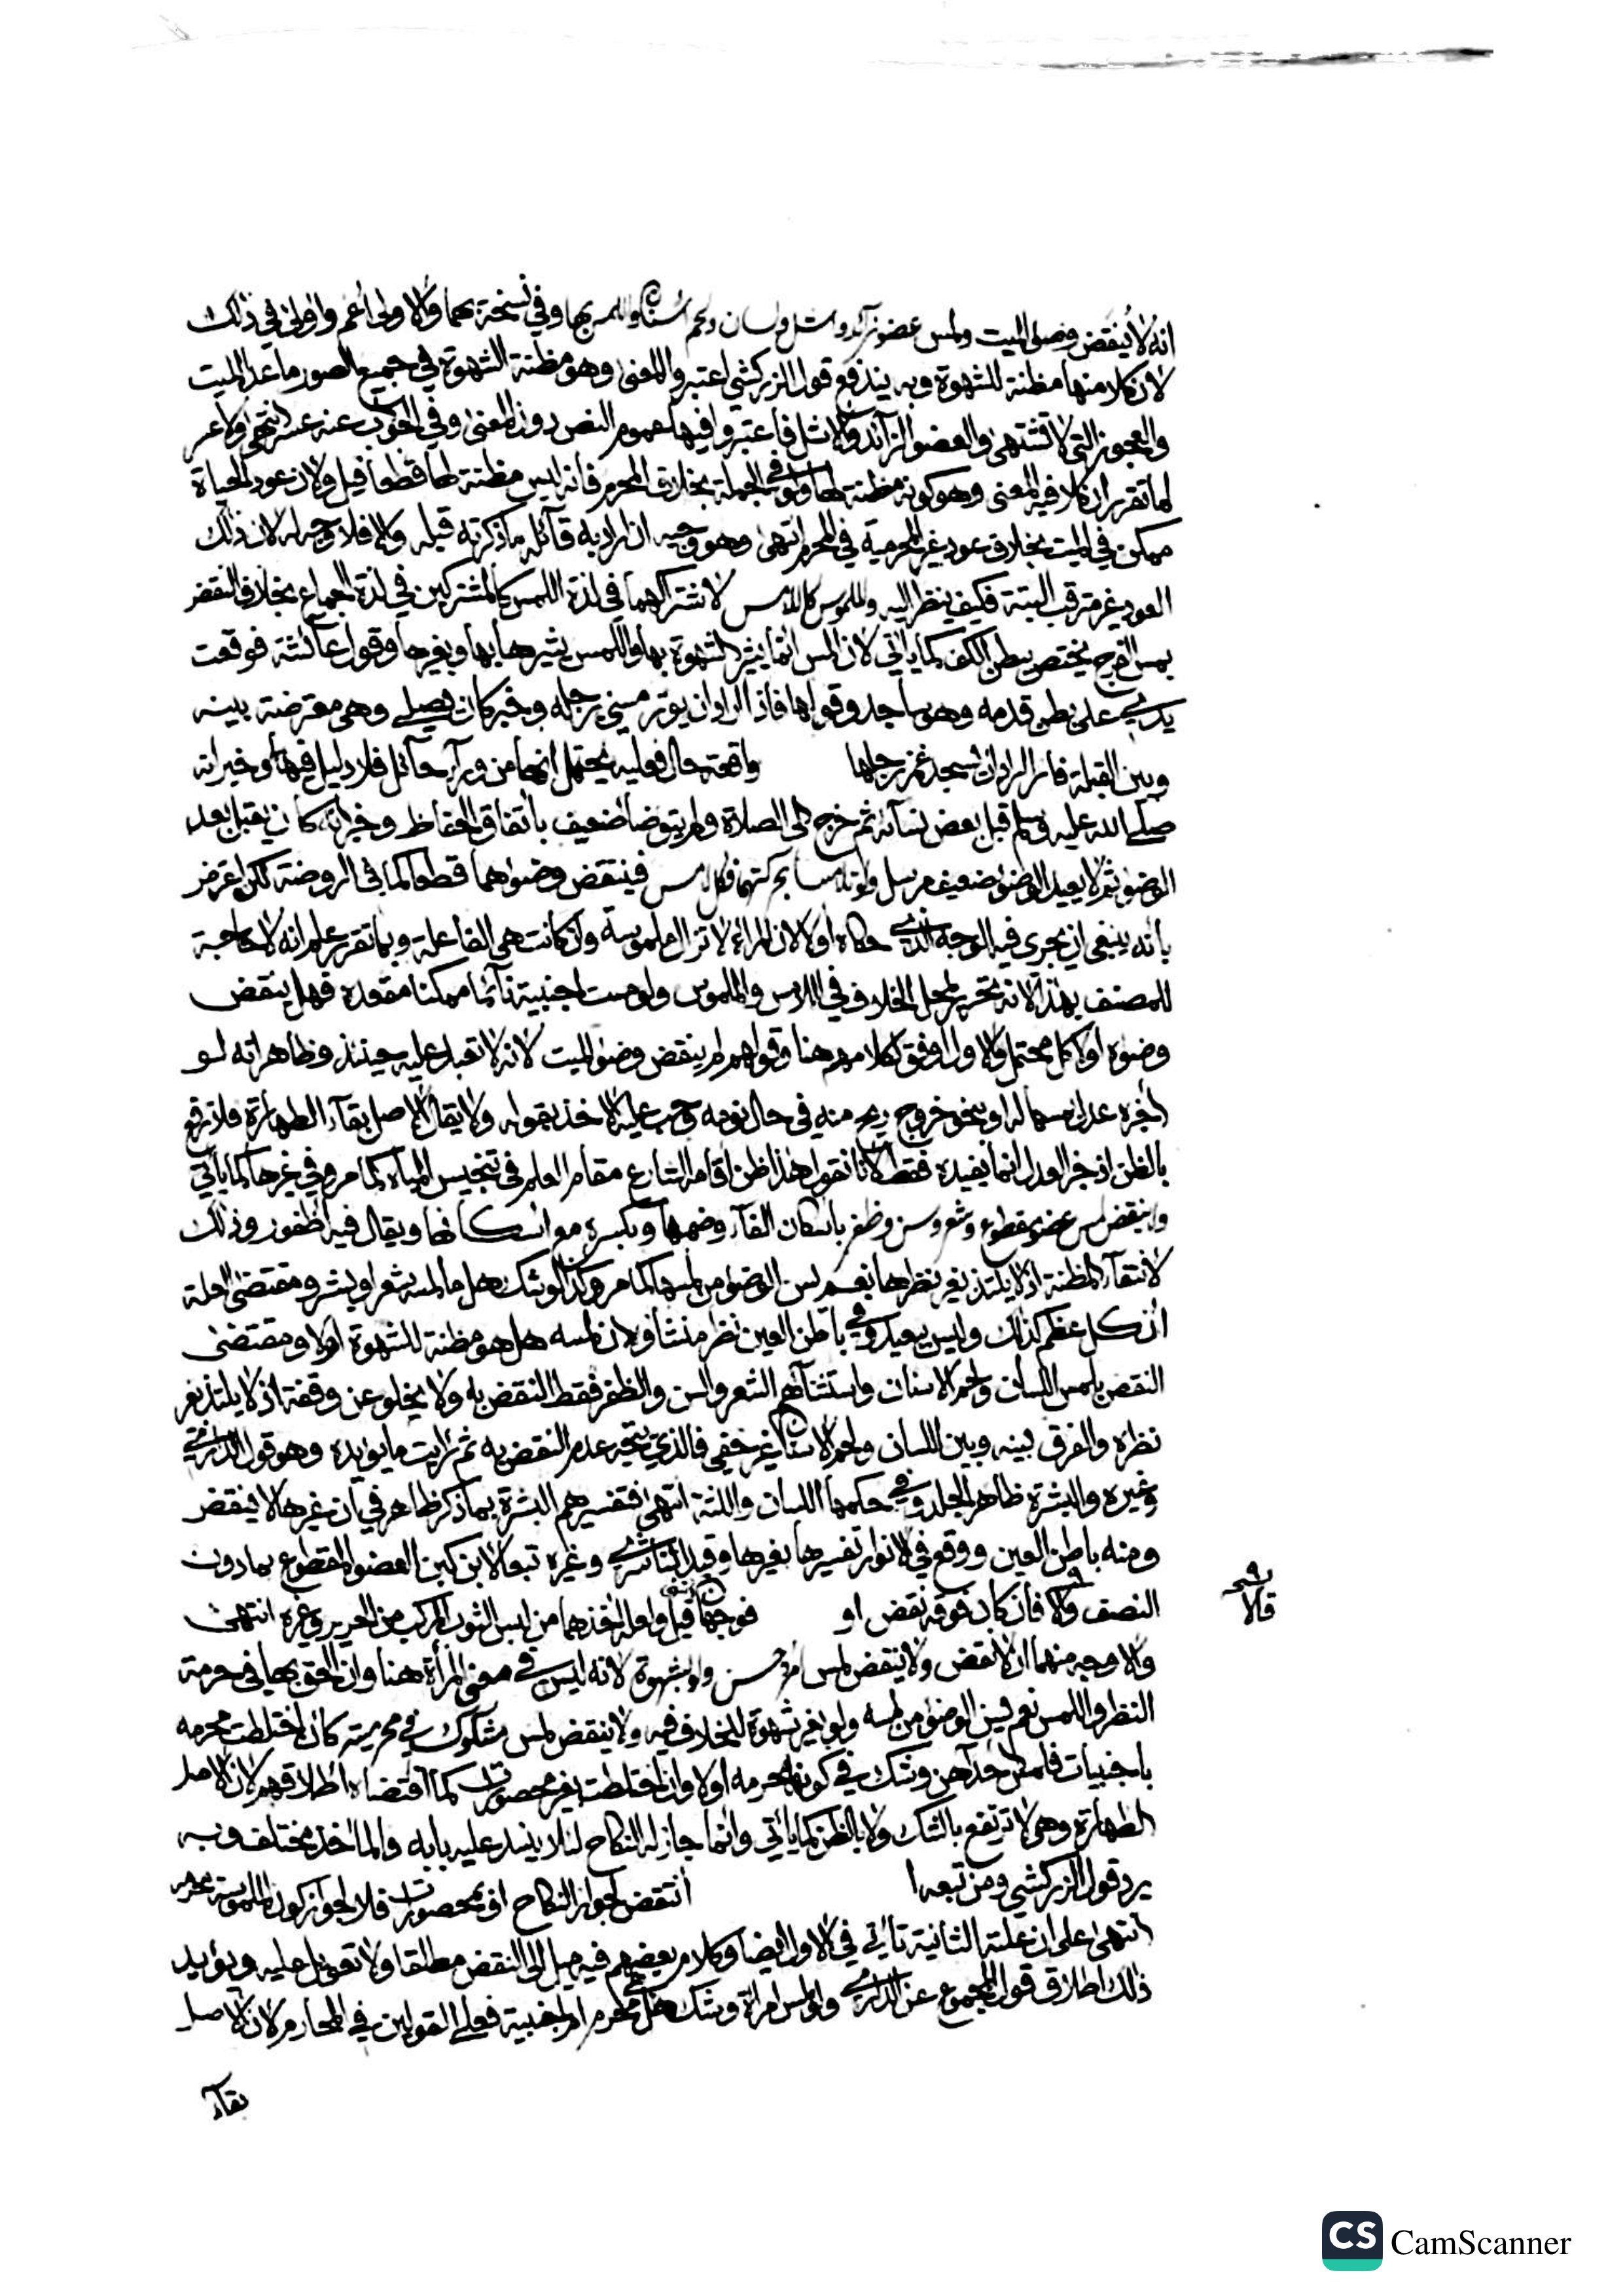 انه لا ينقض وضوء الميت ولمس عضو زائد واشل ولسان ولحم اسنان واللمس بها وفي نسخة بهما والاولى اعم واولى في ذلك
لان كلا منها مظنة للشهوة وبه يندفع قول الزركشي اعتبروا المعنى وهو مظنة الشهوة في جميع الصور ما عدا الميت
والعجوز التي لا تشتهى والعضو الزائد والاشل فاعتبروا فيها عموم النص دون المعنى وفي الجواب عنه عسر انتهى ولا عسر
لما تقرر ان كلا فيه المعنى وهو كونه مظنة لها ولو في الجملة بخلاف المحرم فانه ليس مظنة لها قطعا قيل ولان عود الحياة
ممكن في الميت بخلاف عود غير المحرمية في المحرم انتهى وهو وجيه ان اراد به قائله ما ذكرته قبله والا فلا وجه له لان ذلك
العود غير مترقب البتة فكيف ينظر اليه والملموس كاللامس لاشتراكهما في لذة اللمس كالمشتركين في لذة الجماع بخلاف النقض
بمس الفرج يختص ببطن الكف كما ياتي لان المس انما يثير الشهوة بها واللمس يثيرها بها وبغيرها وقول عائشة فوقعت
يدي على بطن قدمه وهو ساجد وقولها فاذا اراد ان يوتر مسني برجله وخبر كان يصلي وهي معترضة بينه
وبين القبلة فاذا اراد ان يسجد غمز رجلها واقعة حال فعلية يحتمل انها من وراء حائل فلا دليل فيها وخبر انه
صلى الله عليه وسلم قبل بعض نسائه ثم خرج الى الصلاة ولم يتوضأ ضعيف باتفاق الحفاظ وخبر انه كان يقبل بعد
الوضوء ثم لا يعيد الوضوء ضعيف مرسل ولو تلامسا بحركتهما فكل لامس فينتقض وضوءهما قطعا كما في الروضة لكن اعترض
بانه ينبغي ان يجري فيه الوجه الذي حكاه اولا لان المراة لا تزال ملموسة وان كانت هي الفاعلة وبما تقرر علم انه لا حاجة
للمصنف بهذا لانه تحرير لمحل الخلاف في اللامس والملموس ولو مست اجنبية نائما ممكنا مقعده فهل ينتقض
وضوه اولا كل محتمل والاول اوفق لكلامهم هنا وقولهم لم ينتقض وضوء الميت لانه لا تعبد عليه حينئذ وظاهر انه لو
اخبره عدل بمسها له او بنحو خروج ريح منه في حال نومه وجب عليه الاخذ بقوله ولا يقال الاصل بقاء الطهارة فلا ترفع
بالظن اذ خبر العدل انما يفيده فقط لانا نقول هذا ظن اقامه الشارع مقام العلم في تنجيس المياه كما مر وفي غيرها كما ياتي
ولا ينقض لمس عضو مقطوع وشعر وسن وظفر باسكان الفاء وضمها وبكسره مع اسكانها ويقال فيه اظفور وذلك
لانتفاء المظنة اذ لا يلتذ بغير نظرها نعم يسن الوضوء من لمسها كما مر وكذا لو شك هل ما لمسه شعر او بشر ومقتضى العلة
ان كل عظم كذلك وليس ببعيد وفي باطن العين نظر منشاوه ان لمسه هل هو مظنة للشهوة اولا ومقتضى
النقض بلمس اللسان ولحم الاسنان واستثنائهم الشعر والسن والظفر فقط النقض به ولا يخلو عن وقفة اذ لا يلتذ بغير
نظره والفرق بينه وبين اللسان ولحم الاسنان غير خفي فالذي يتجه عدم النقض به ثم رايت ما يؤيده وهو قول الدارمي
وغيره والبشرة ظاهر الجلد وفي حكمها اللسان واللثة انتهى فتفسيرهم البشرة بما ذكر ظاهر في ان غيرها لا ينقض
ومنه باطن العين ووقع في الانوار تفسيرها بغيرها وقيد الناشري وغيره تبعا لابن كبن العضو المقطوع بما دون
النصف والا فان كان فوقه نقض او فوجهان قيل ولعله اخذهما من لبس الثوب المركب من الحرير وغيره انتهى
قالا
والاوجه منهما ان لا نقض ولا ينقض لمس امرد حسن ولو بشهوة لانه ليس في معنى المرأة هنا وان الحق بها في حرمة
النظر واللمس نعم يسن الوضوء من لمسه ولو بغير شهوة للخلاف فيه ولا ينقض لمس مشكوك في محرميته كان اختلطت محرمه
باجنبيات فلمس احداهن وشك في كونها محرمه اولا وان اختلطت بغير محصورات كما اقتضاه اطلاقهم لان الاصل
الطهارة وهي لا ترتفع بالشك ولا بالظن كما ياتي وانما جاز له النكاح لئلا ينسد عليه بابه والماخذ مختلف وبه
يرد قول الزركشي ومن تبعه ان انتقض لجواز النكاح او بمحصورات فلا لجواز كون الملموسة محرمه
انتهى على ان علته الثانية تاتي في الاول ايضا وكلام بعضهم فيه ميل الى النقض مطلقا ولا تعويل عليه ويؤيد
ذلك اطلاق قول المجموع عن الدارمي ولو لمس امراة وشك هل هي محرم ام اجنبية فعلى القولين في المحارم لان الاصل
بقاء
CS CamScanner